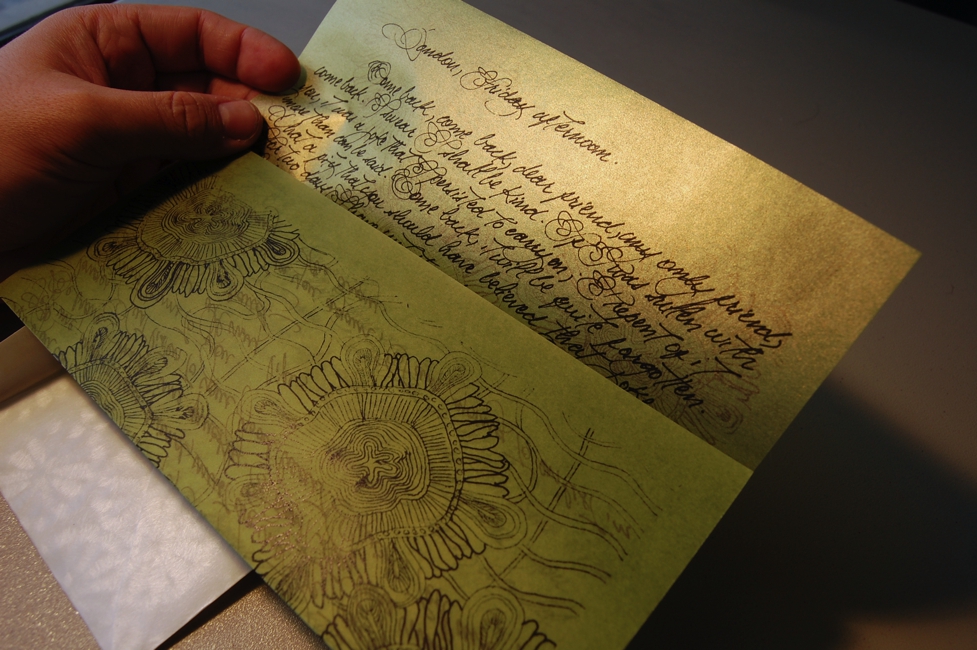 London, Friday afternoon.
Come back, come back, dear friend, my only friend,
come back. I swear I shall be kind. If I was sullen with
it was a joke that I persisted to carry on, I repent of it
more than can be said. Come back, it will be quite forgotten.
What a pity that you should have believed that
two